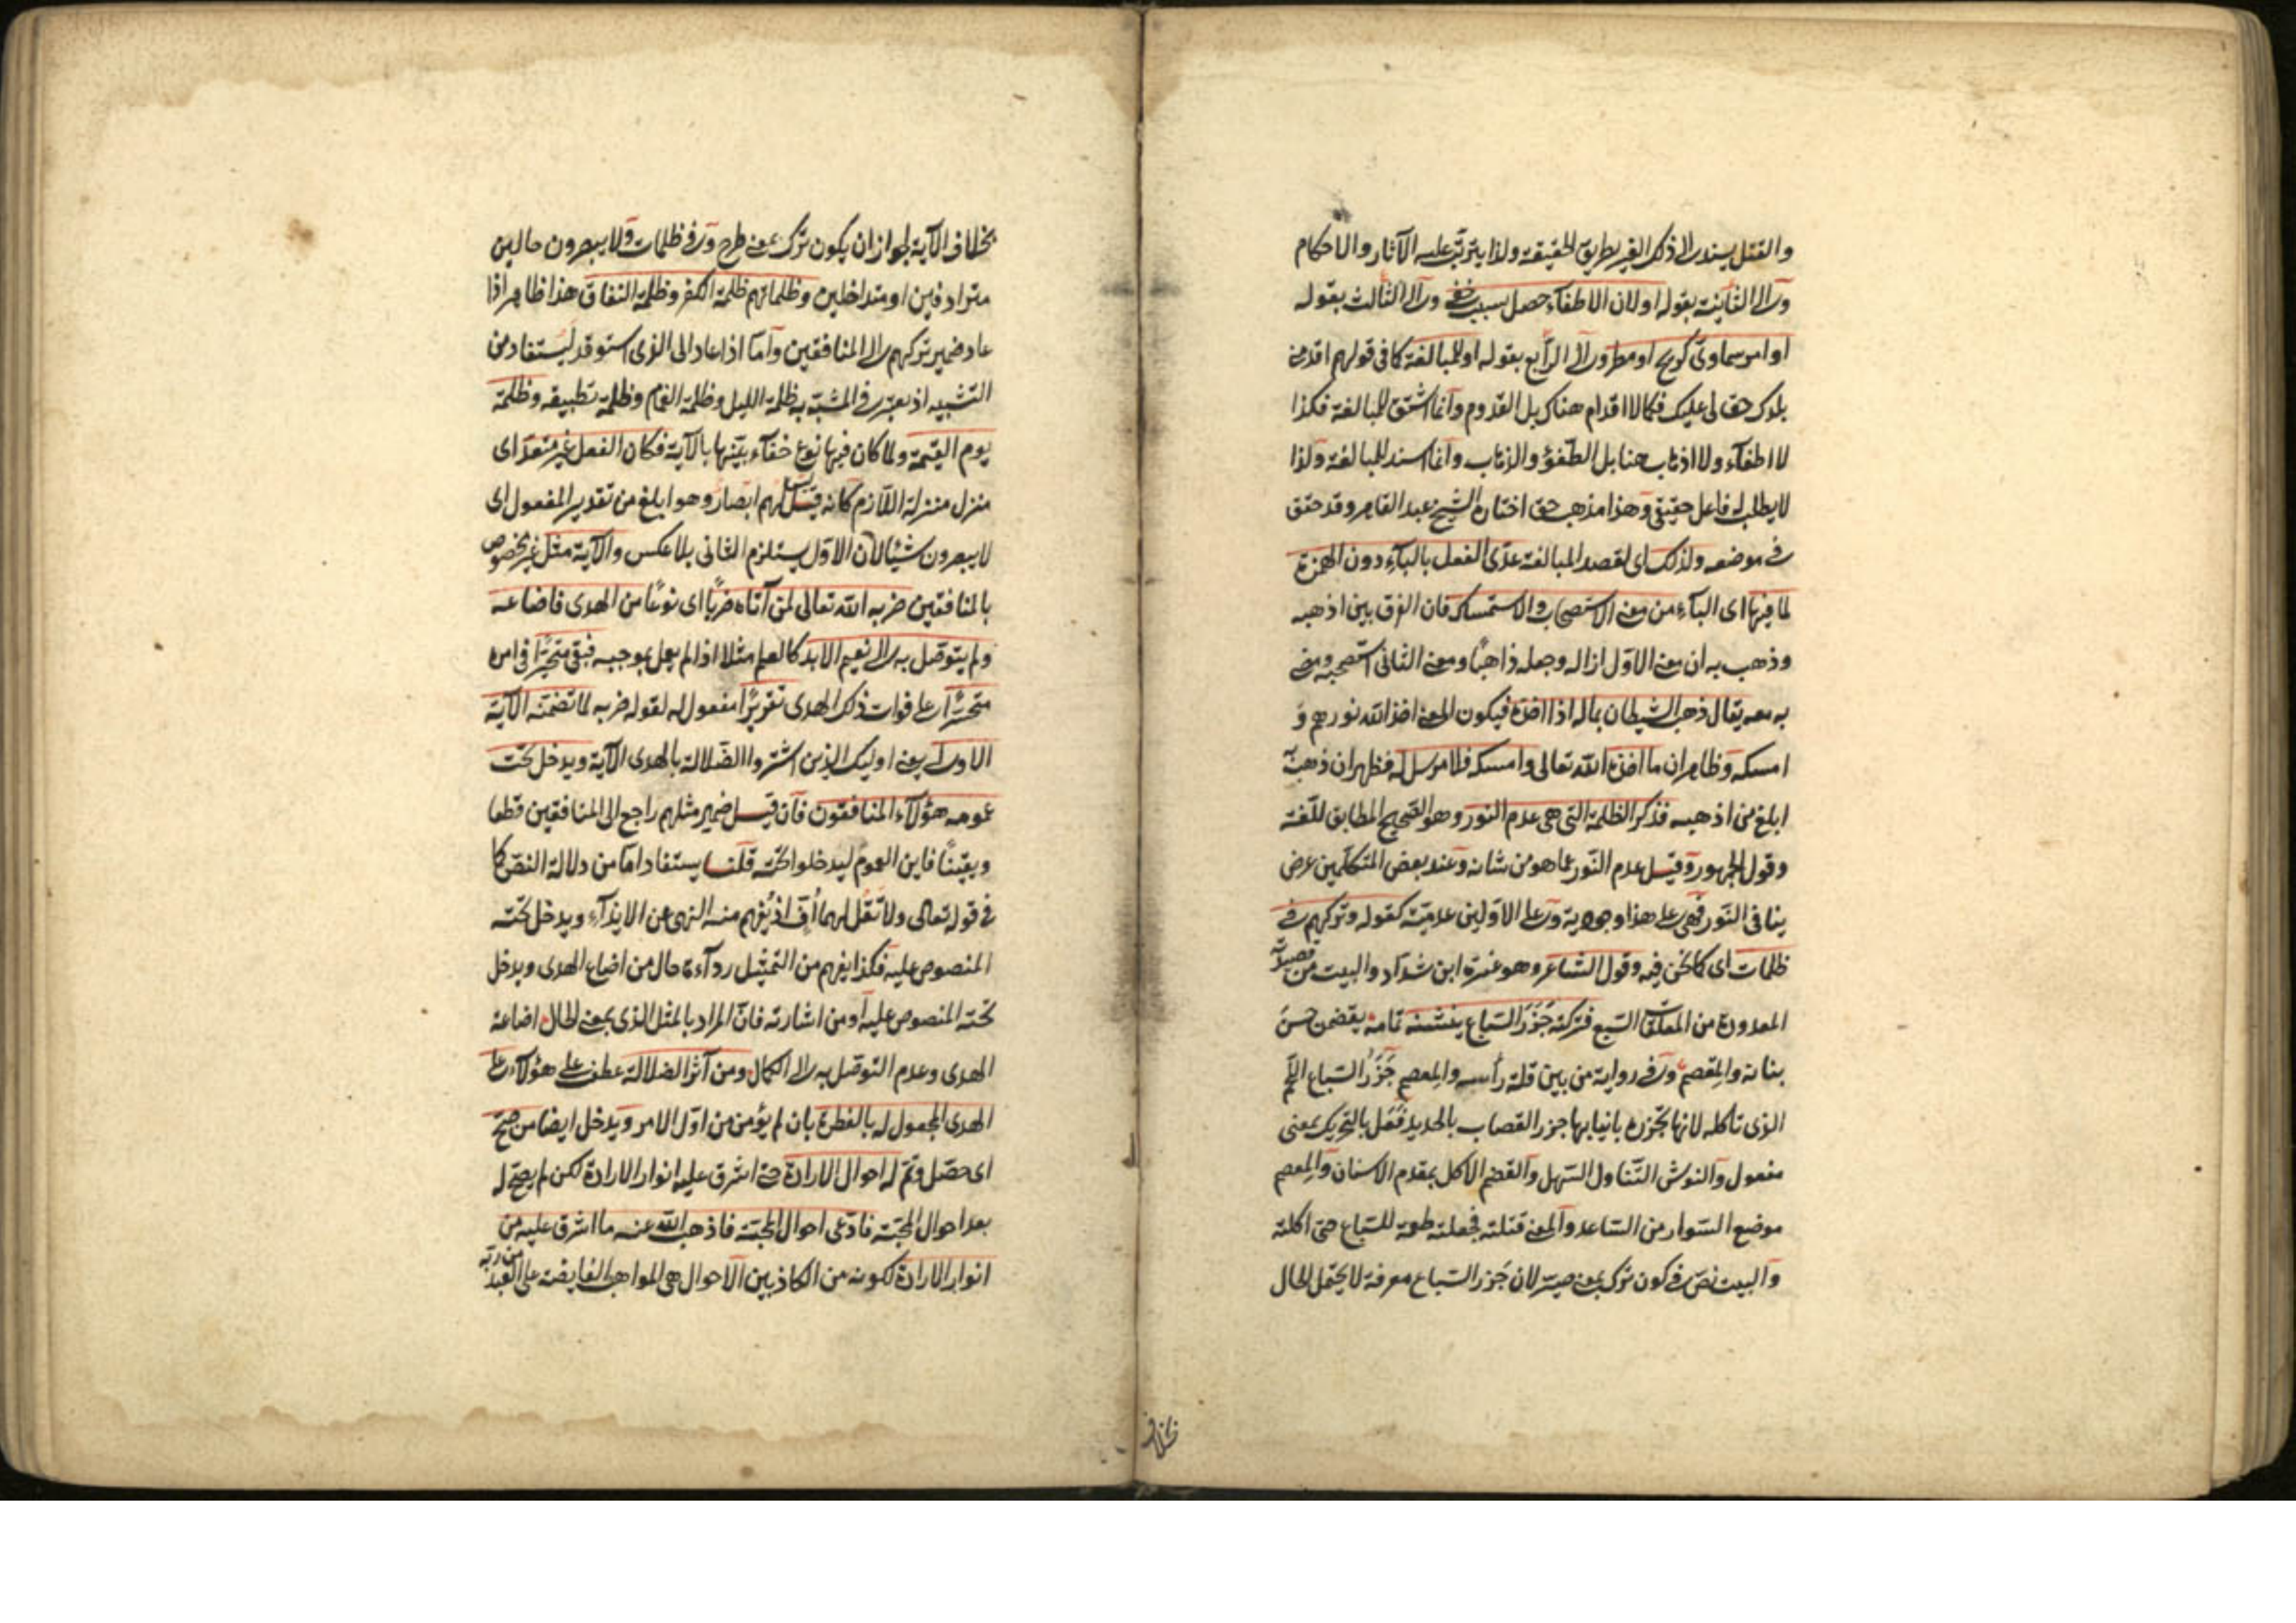 والفتل يسند الى ذلك الغير بطريق الحقيقة ولذا يترتب عليه الآثار والاحكام
والى الثانية بقوله اولان الاطفاء حصل بسبب خفي والى الثالث بقوله
او امر سماوي كريح او مطر والى الرابع بقوله او للمبالغة كما في قولهم اقدمني
بلدك حق لي عليك فكما لا اقدام هناك بل القدوم وانما اشتق للمبالغة فكذا
لا اطفاء ولا اذهاب هنا بل الطفؤ والذهاب وانما اسند للمبالغة ولذا
لا يطلب له فاعل حقيقي وهذا مذهب حق اختاره الشيخ عبد القاهر وقد حقق
في موضعه ولذلك اى لقصد المبالغة عدّى الفعل بالباء دون الهمزة
لما فيها اى الباء من معنى الاستصحاب والاستمساك فان الفرق بين اذهبه
وذهب به ان معنى الاول ازاله وجعله ذاهبًا ومعنى الثاني استصحبه ومضى
به معه يقال ذهب الشيطان بماله اذا اخذه فيكون المعنى اخذ الله نورهم و
امسكه وظاهر ان ما اخذه الله تعالى وامسكه فلا مرسل له فظهر ان ذهب به
ابلغ من اذهبه فذكر الظلمة التى هى عدم النور وهو الصحيح المطابق للغة
وقول الجمهور وقيل عدم النور عما هو من شانه وعند بعض المتكلمين عرض
ينافي النور فهى على هذا وجودية وعلى الاولين عدمية كقوله وتركهم في
ظلمات اى كما نحن فيه وقول الشاعر وهو عنترة ابن شداد والبيت من قصيدته
المعدودة من المعلقات السبع فتركته جَزَرَ السباع ينشنه تمامه يقضمن حسن
بنانه والمعصم وفي رواية من بين قلة رأسه والمعصم جَزَرُ السباع اللحم
الذى تاكله لانها تجزره بانيابها جزر القصاب بالحديد فَعَل بالتحريك بمعنى
مفعول والنوش التناول السهل والقضم الاكل بمقدم الاسنان والمعصم
موضع السوار من الساعد والمعنى قتلته فجعلته طعمة للسباع حتى اكلته
والبيت نصّ في كون ترك بمعنى صيّر لان جَزر السباع معرفة لا يحتمل الحال
بخلاف
بخلاف الآية لجواز ان يكون ترك بمعنى طرح وفي ظلمات ولا يبصرون حالين
مترادفين او متداخلين وظلماتهم ظلمة الكفر وظلمة النفاق هذا ظاهر اذا
عاد ضمير تركهم الى المنافقين واما اذا عاد الى الذى استوقد ليستفاد من
التشبيه اذ يعتبر في المشبه به ظلمة الليل وظلمة الغمام وظلمة تطبيقه وظلمة
يوم القيمة ولما كان فيها نوع خفاء بيّنها بالآية فكان الفعل غير متعدّ اى
منزل منزلة اللازم كانه قيل ليس لهم ابصار وهو ابلغ من تقدير المفعول اى
لا يبصرون شيئا لان الاول يستلزم الثاني بلا عكس والآية مثل غير مخصوص
بالمنافقين ضربه الله تعالى لمن آتاه ضربًا اى نوعًا من الهدى فاضاعه
ولم يتوصل به الى نعيم الابد كالعلم مثلا اذا لم يعمل بموجبه فبقى متحيرًا في امره
متحسرًا على فوات ذلك الهدى تقريرًا مفعول له لقوله ضربه لما تضمنته الآية
الاولى يعنى اوليك الذين اشتروا الضلالة بالهدى الآية ويدخل تحت
عمومه هؤلاء المنافقون فان قيل ضمير مثلهم راجع الى المنافقين قطعا
ويقينًا فاين العموم ليدخلوا تحته قلنا يستفاد اما من دلالة النصّ كما
في قوله تعالى ولا تقل لهما أُفّ اذ يُفهم منه النهى عن الايذاء ويدخل تحته
المنصوص عليه فكذا يفهم من التمثيل رداءة حال من اضاع الهدى ويدخل
تحته المنصوص عليه او من اشارته فانّ المراد بالمثل الذى بمعنى الحال اضاعة
الهدى وعدم التوصل به الى الكمال ومن آثر الضلالة عطف على هؤلاء على
الهدى المجعول له بالفطرة بان لم يؤمن من اول الامر ويدخل ايضا من صحّ
اى حصل وتمّ له احوال الارادة حتى اشرق عليه انوار الارادة لكن لم يصحّ له
بعد احوال المحبّة فادّعى احوال المحبّة فاذهب الله عنه ما اشرق عليه من
انوار الارادة لكونه من الكاذبين الاحوال هى المواهب الفايضة على العبد من ربّه